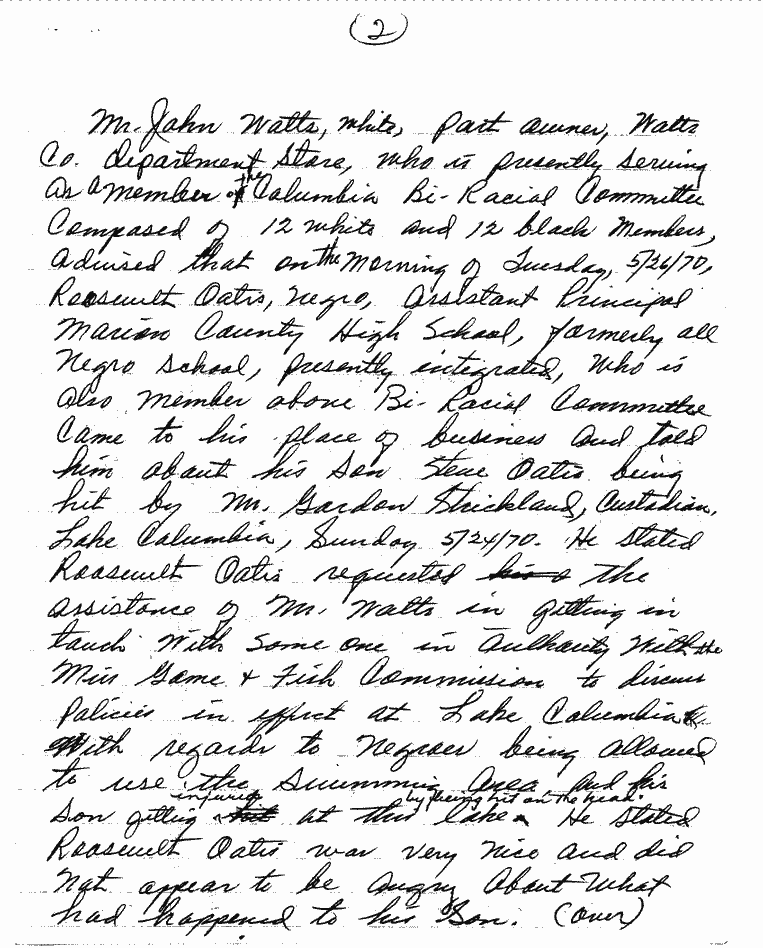 (2)
Mr. John Watts, white, part owner, Watts
Co. department Store, who is presently serving
as a member of the Columbia Bi-Racial Committee
Composed of 12 white and 12 black members,
advised that on the morning of Tuesday, 5/26/70,
Roosevelt Oatis, Negro, Assistant Principal
Marion County High School, formerly all
Negro School, presently integrated, who is
also member above Bi-Racial Committee
Came to his place of business and told
him about his son Steve Oatis being
hit by Mr. Gordon Strickland, Custodian,
Lake Columbia, Sunday 5/24/70. He stated
Roosevelt Oatis requested his the
assistance of Mr. Watts in getting in
touch with some one in Authority with the
Miss Game & Fish Commission to discuss
Policies in effect at Lake Columbia
With regards to Negroes being allowed
to use the swimming area and his
son getting hit injured at this lake by being hit on the head. He stated
Roosevelt Oatis was very nice and did
not appear to be angry about what
had happened to his son. (over)